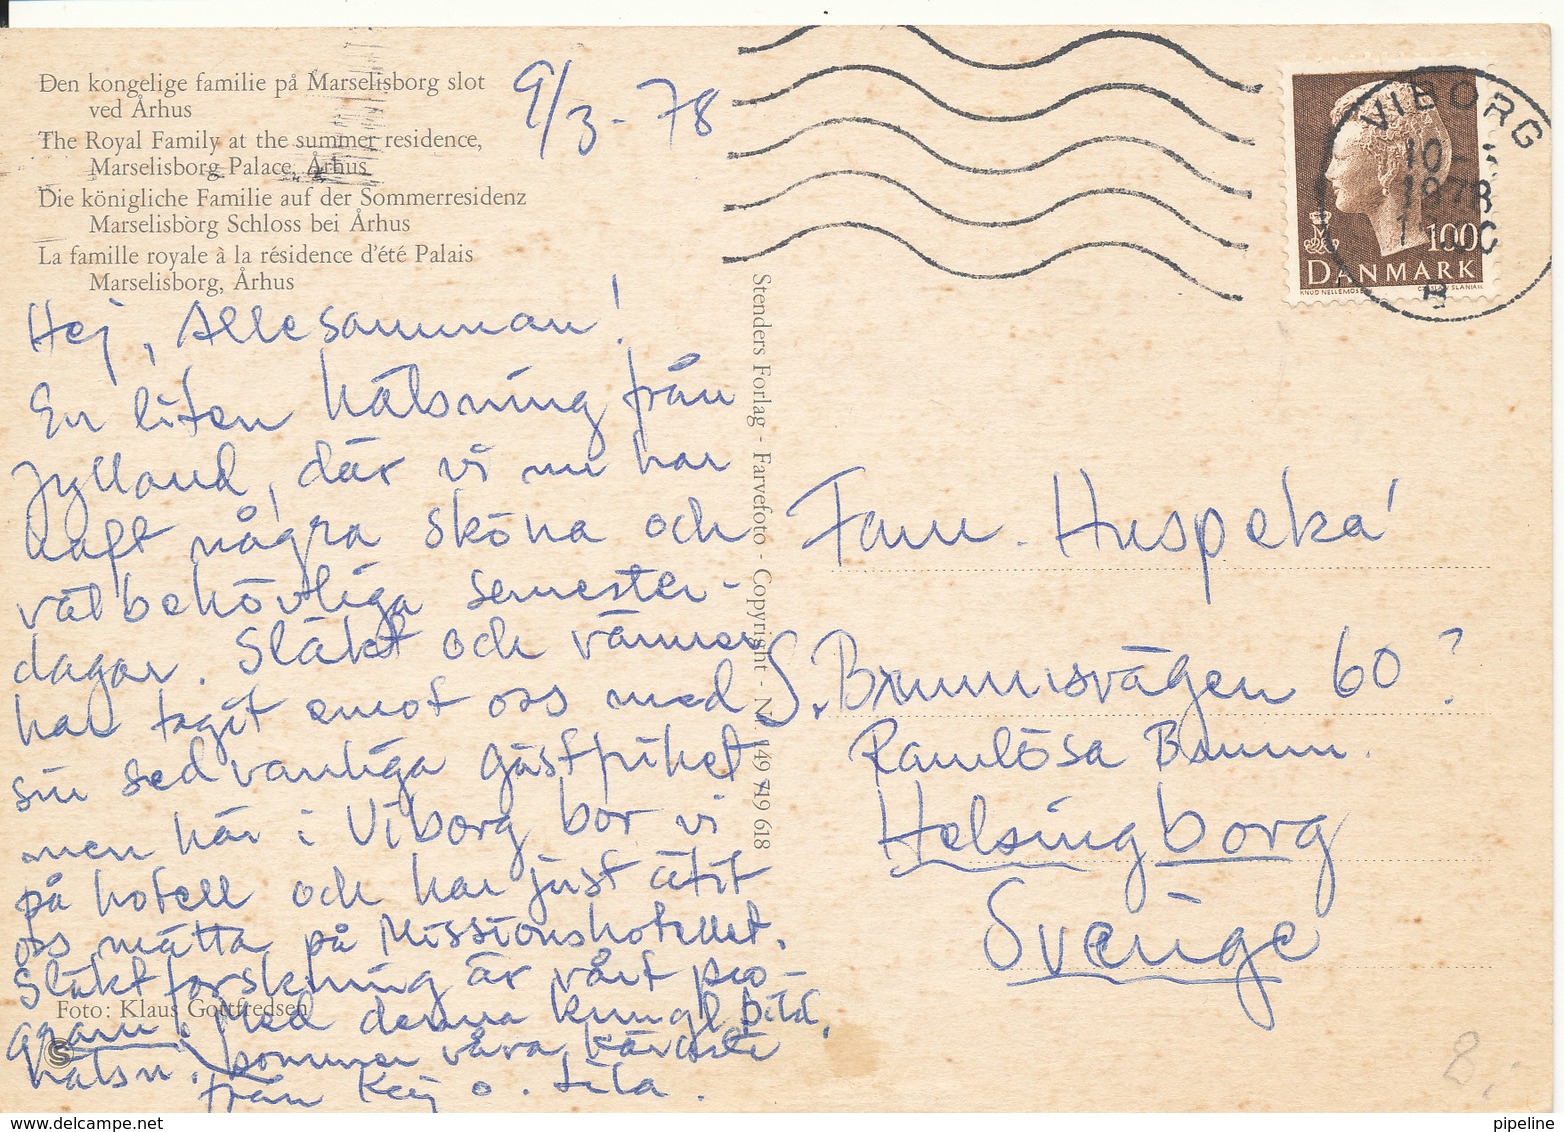 Den kongelige familie på Marselisborg slot
ved Århus
The Royal Family at the summer residence,
Marselisborg Palace, Århus
Die königliche Familie auf der Sommerresidenz
Marselisborg Schloss bei Århus
La famille royale à la résidence d'été Palais
Marselisborg, Århus
9/3 - 78
Hej, Allesamman!
En liten hälsning från
Jylland, där vi nu har
haft några sköna och
välbehövliga semester-
dagar. Släkt och vänner
har tagit emot oss med
sin sedvanliga gästfrihet
men här i Viborg bor vi
på hotell och har just ätit
oss mätta på Missionshotellet.
Släktforskning är vårt pro-
gram. Med denna kungl. bild
hälsn. kommer våra käraste
från Kaj o. Lila.
Foto: Klaus Gottfredsen
S
Stenders Forlag - Farvefoto - Copyright - Nr. 149 719 618
VIBORG
10-3
1978
B
100
DANMARK
Fam. Huspeka'
S. Brunnsvägen 60?
Ramlösa Brunn.
Helsingborg
Sverige
8:
delcampe.net
pipeline